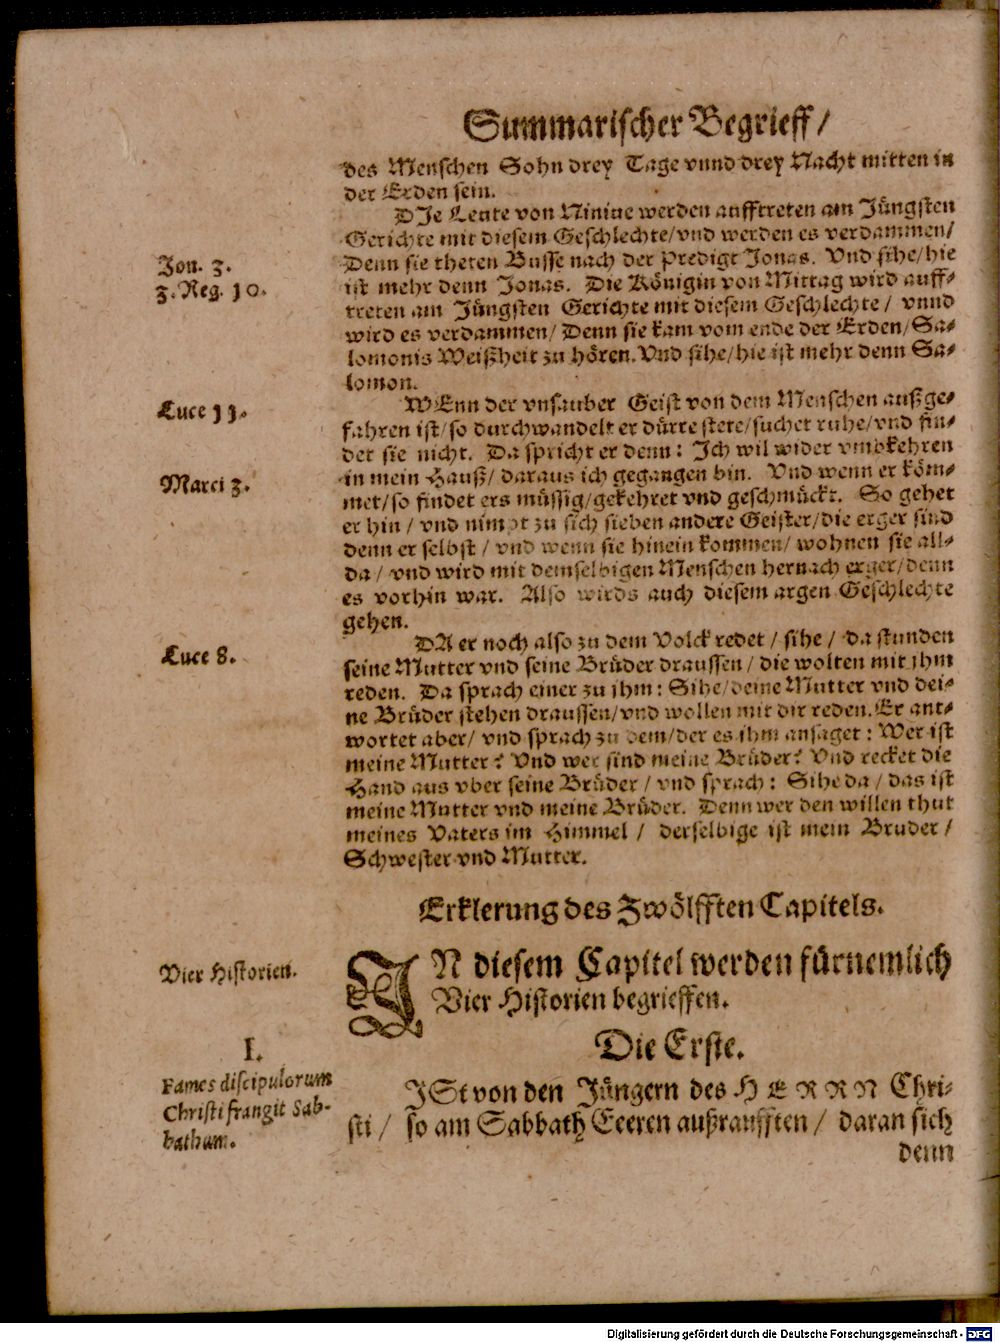 Summarischer Begrieff/
des Menschen Sohn drey Tage vnnd drey Nacht mitten in
der Erden sein.
DIe Leute von Niniue werden aufftreten am Jüngsten
Gerichte mit diesem Geschlechte/vnd werden es verdammen/
Jon. 3.
Denn sie theten Busse nach der Predigt Jonas. Vnd sihe/hie
3. Reg. 10.
ist mehr denn Jonas. Die Königin von Mittag wird auff-
treten am Jüngsten Gerichte mit diesem Geschlechte/ vnnd
wird es verdammen/ Denn sie kam vom ende der Erden/Sa-
lomonis Weißheit zu hören. Vnd sihe/hie ist mehr denn Sa-
lomon.
Luce 11.
WEnn der vnsauber Geist von dem Menschen außge-
fahren ist/so durchwandelt er dürre stete/suchet ruhe/vnd fin-
det sie nicht. Da spricht er denn: Ich wil wider vmbkehren
in mein Hauß/ daraus ich gegangen bin. Vnd wenn er köm-
Marci 3.
met/so findet ers müssig/gekehret vnd geschmückt. So gehet
er hin/ vnd nimpt zu sich sieben andere Geister/die erger sind
denn er selbst/ vnd wenn sie hinein kommen/ wohnen sie all-
da/ vnd wird mit demselbigen Menschen hernach erger/denn
es vorhin war. Also wirds auch diesem argen Geschlechte
gehen.
DA er noch also zu dem Volck redet/ sihe/ da stunden
Luce 8.
seine Mutter vnd seine Brüder draussen/ die wolten mit jhm
reden. Da sprach einer zu jhm: Sihe/deine Mutter vnd dei-
ne Brüder stehen draussen/vnd wollen mit dir reden. Er ant-
wortet aber/ vnd sprach zu dem/der es ihm ansaget: Wer ist
meine Mutter? Vnd wer sind meine Brüder? Vnd recket die
Hand aus vber seine Brüder/ vnd sprach: Sihe da/ das ist
meine Mutter vnd meine Brüder. Denn wer den willen thut
meines Vaters im Himmel/ derselbige ist mein Bruder/
Schwester vnd Mutter.
Erklerung des Zwölfften Capitels.
Vier Historien.
IN diesem Capitel werden fürnemlich
Vier Historien begrieffen.
Die Erste.
I.
Fames discipulorum
Christi frangit Sab-
bathum.
ISt von den Jüngern des HERRN Chri-
sti/ so am Sabbath Eeeren außraufften/ daran sich
denn
Digitalisierung gefördert durch die Deutsche Forschungsgemeinschaft - DFG